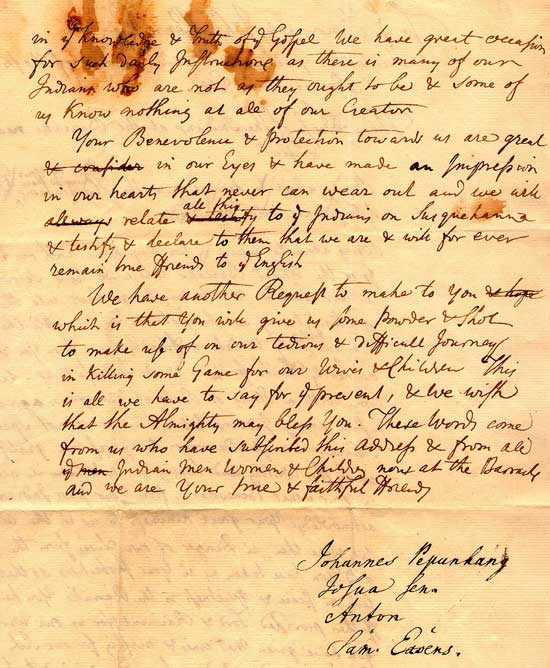 in yͤ Knowledge & Truth of yͤ Gospel We have great occasion
for such daily Instructions as there is many of our
Indians who are not as they ought to be & some of
us know nothing at all of our Creator
Your Benevolence & Protection towards us are great
& consider in our Eyes & have made an Impression
in our hearts that never can wear out and we will
allways relate & testify all this to yͤ Indians on Susquehanna
& testify & declare to them that we are & will for ever
remain true Friends to yͤ English
We have another Request to make to You & hope
which is that You will give us some Powder & Shot
to make use of on our tedious & difficult Journey
in killing some Game for our Wives & Children This
is all we have to say for yͤ present, & we wish
that the Almighty may bless You. These Words come
from us who have subscribed this Address & from all
yͤ men Indian Men Women & Children now at the Barracks
and we are Your true & faithful Friends
Johannes Pepunhang
Josua Senr.
Anton
Sam. Evens.